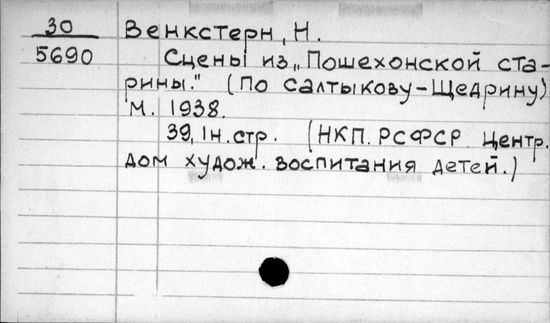 30 Венкстерн, Н.
5690 Сцены из „Пошехонской ста-
рины." (По Салтыкову-Щедрину)
М. 1938.
39, 1н. стр. (НКП. РСФСР. Центр.
дом худож. воспитания детей.)